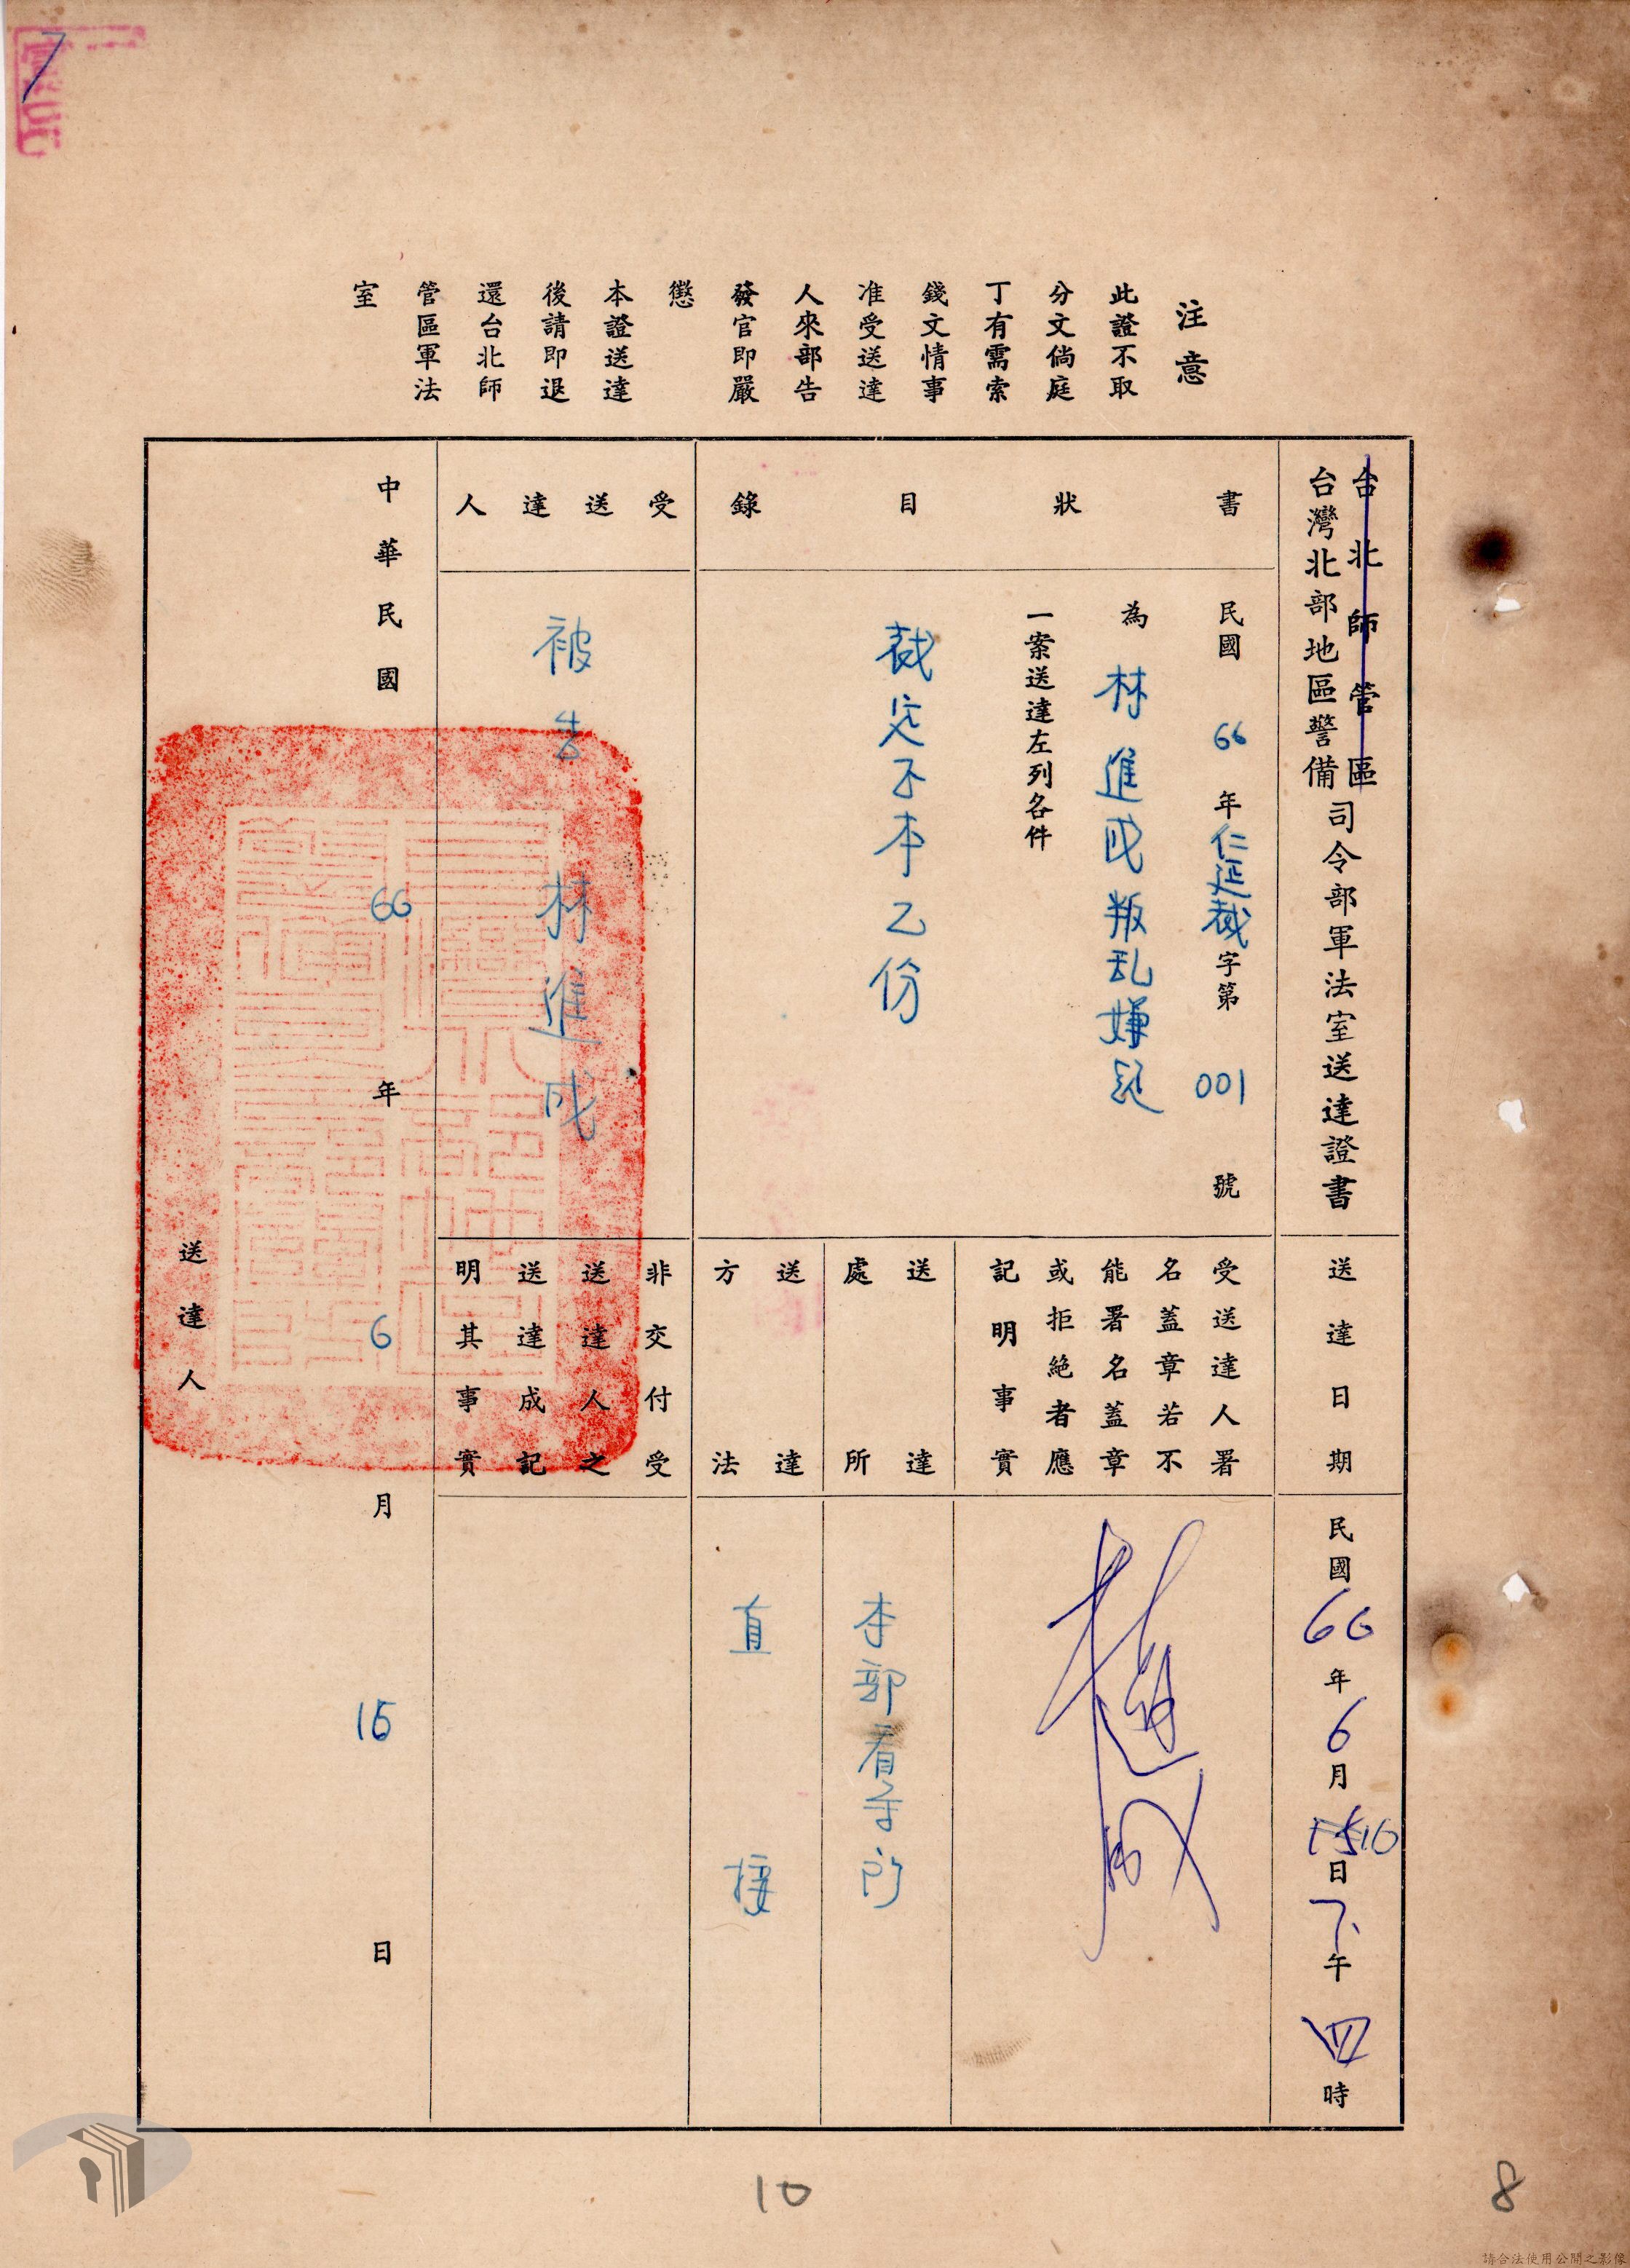 注意
此證不取
分文倘庭
丁有需索
錢文情事
准受送達
人來部告
發官即嚴
懲
本證送達
後請即退
還台北師
管區軍法
室
台北師管區
台灣北部地區警備
司令部軍法室送達證書
送達日期
民國66年6月16日下午四時
書狀目錄
民國66年仁延裁字第001號
為林進成叛乱嫌疑
一案送達左列各件
裁定正本乙份
受送達人署
名蓋章若不
能署名蓋章
或拒絕者應
記明事實
林進成
送達處所
本部看守所
送達方法
直接
受送達人
被告 林進成
非交付受
送達人之
送達成記
明其事實
中華民國66年6月15日
送達人
7
10
8
請合法使用公開之影像